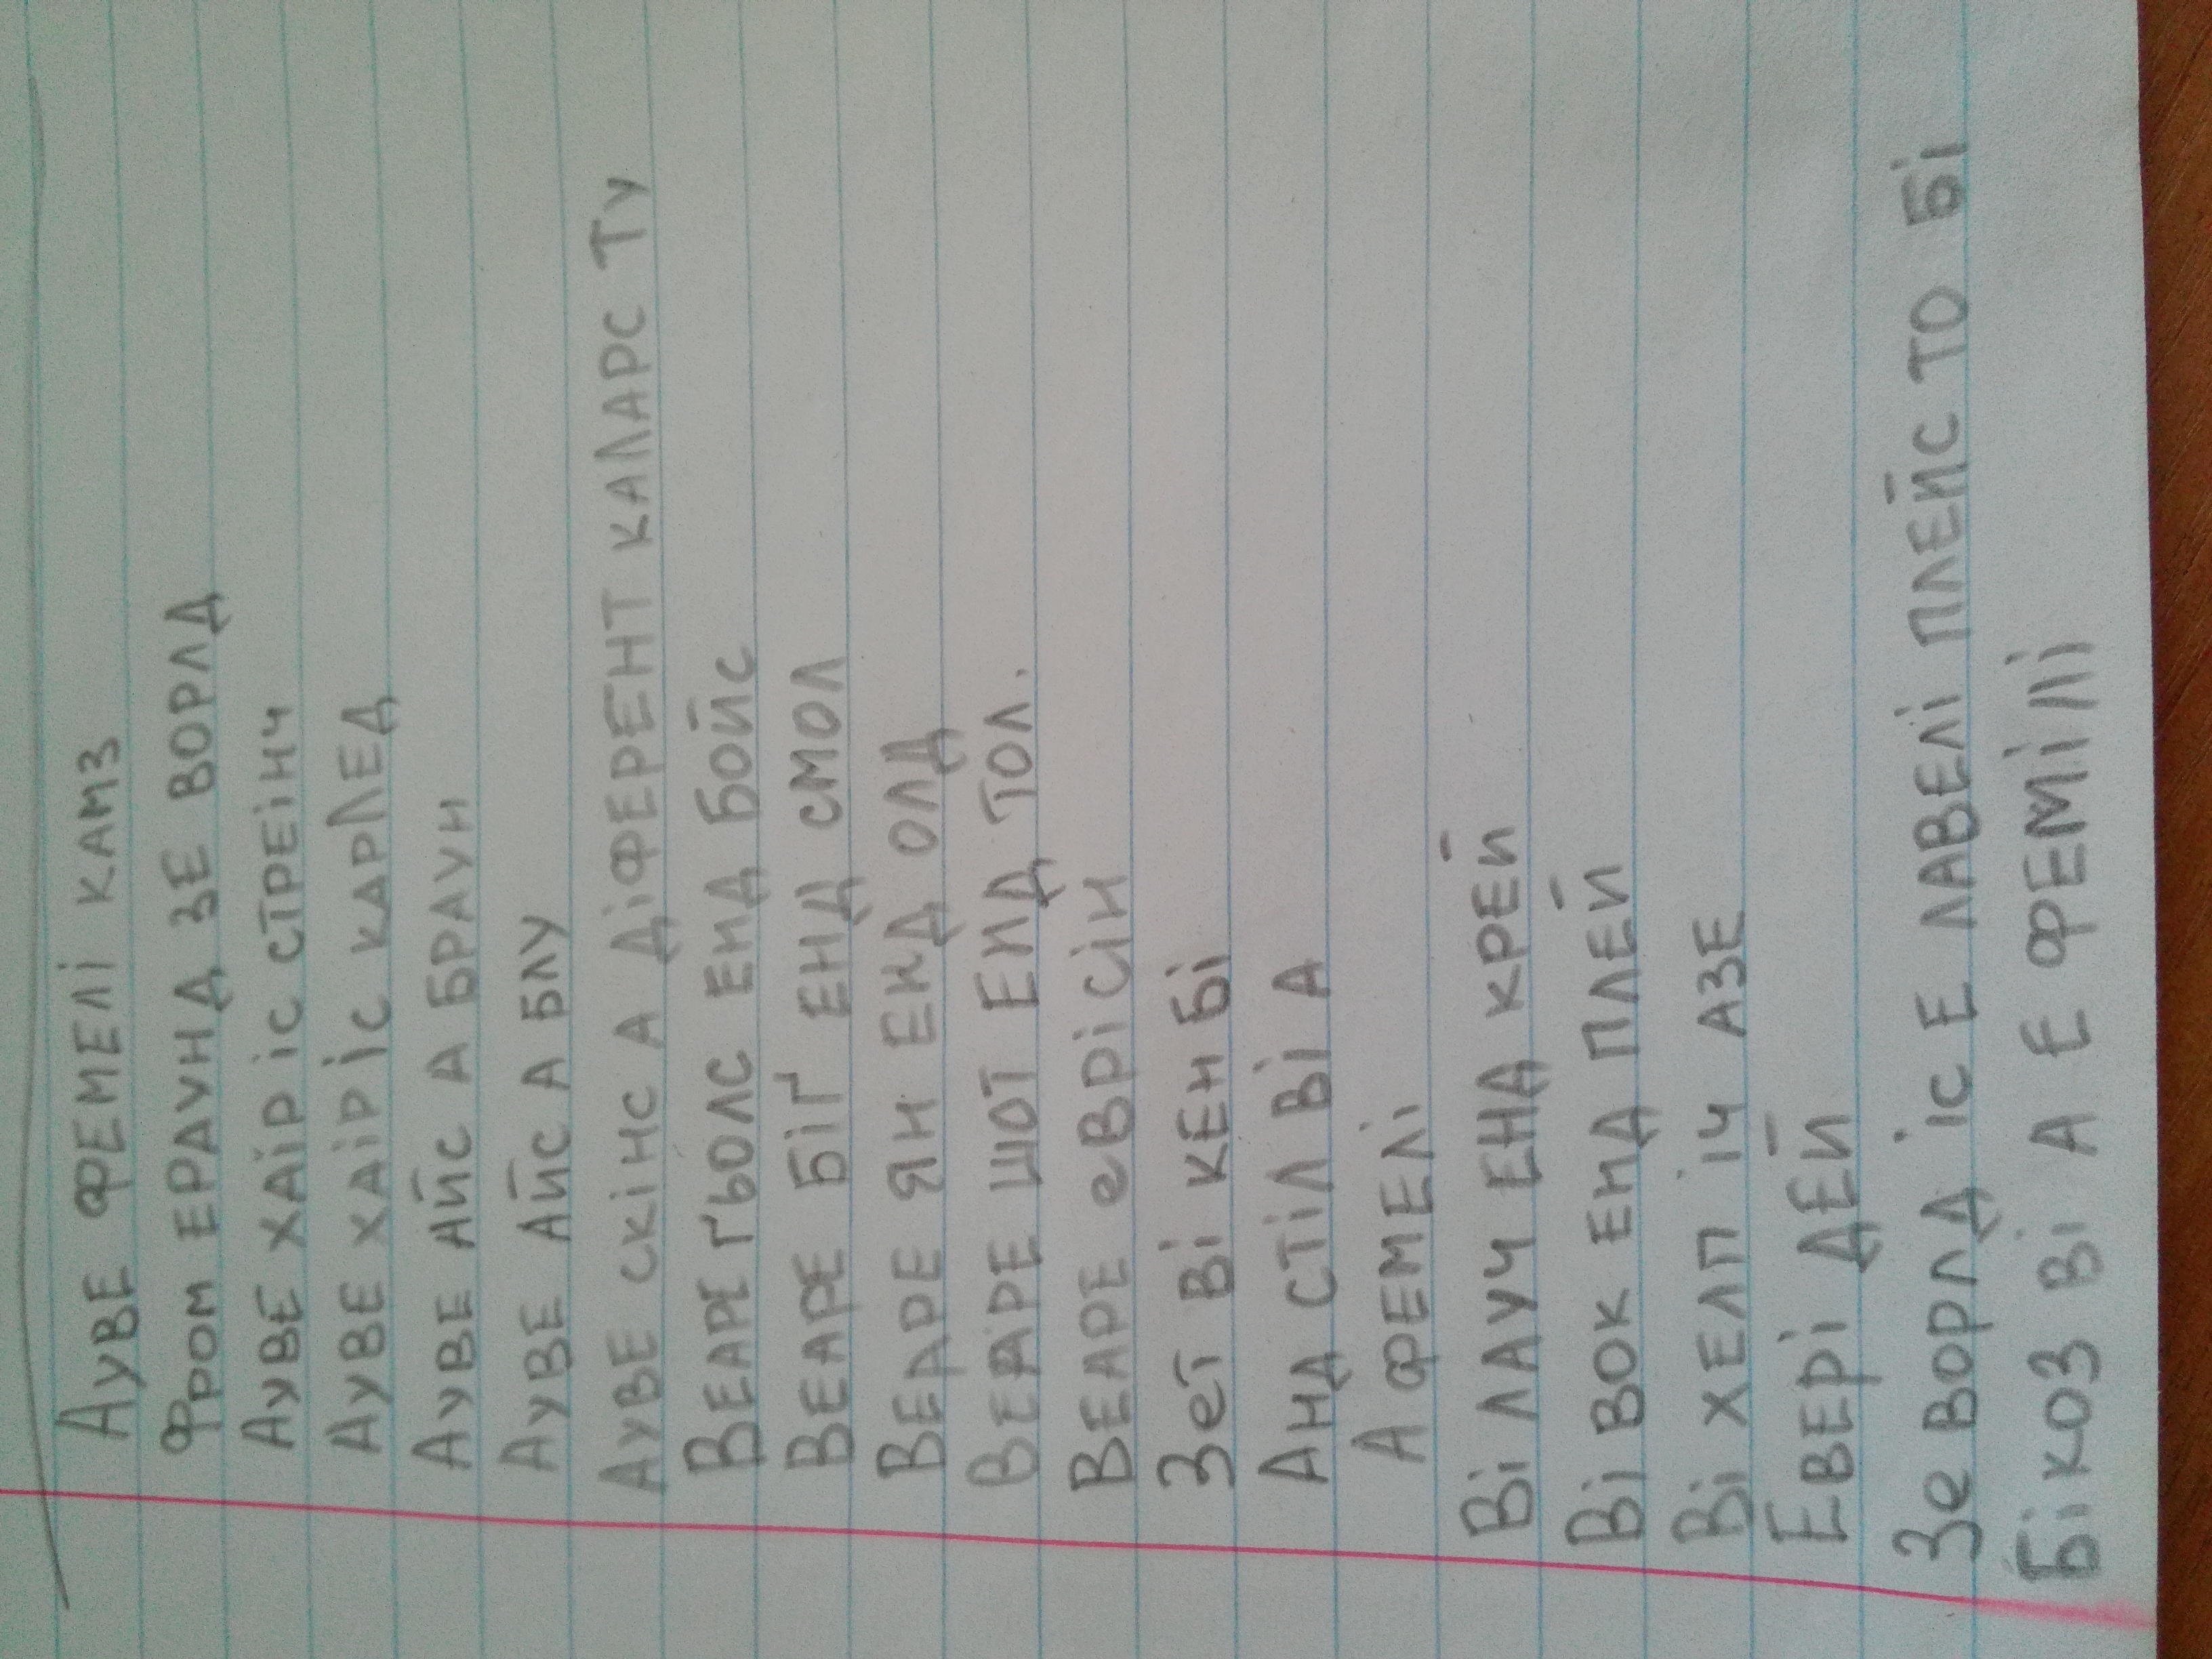 Ауве фемелі камз
Фром ераунд зе ворлд
Ауве хаір іс стреінч
Ауве хаір іс карлед
Ауве айс а браун
Ауве айс а блу
Ауве скінс а діферент каларс ту
Веаре ґьолс енд бойс
Веаре біґ енд смол
Веаре ян енд олд
Веаре шот енд тол.
Веаре еврісін
Зет ві кен бі
Анд стіл ві а
А фемелі
Ві лауч енд крей
Ві вок енд плей
Ві хелп іч азе
Евері дей
Зе ворлд іс е лавелі плейс то бі
Бікоз ві а е феміллі